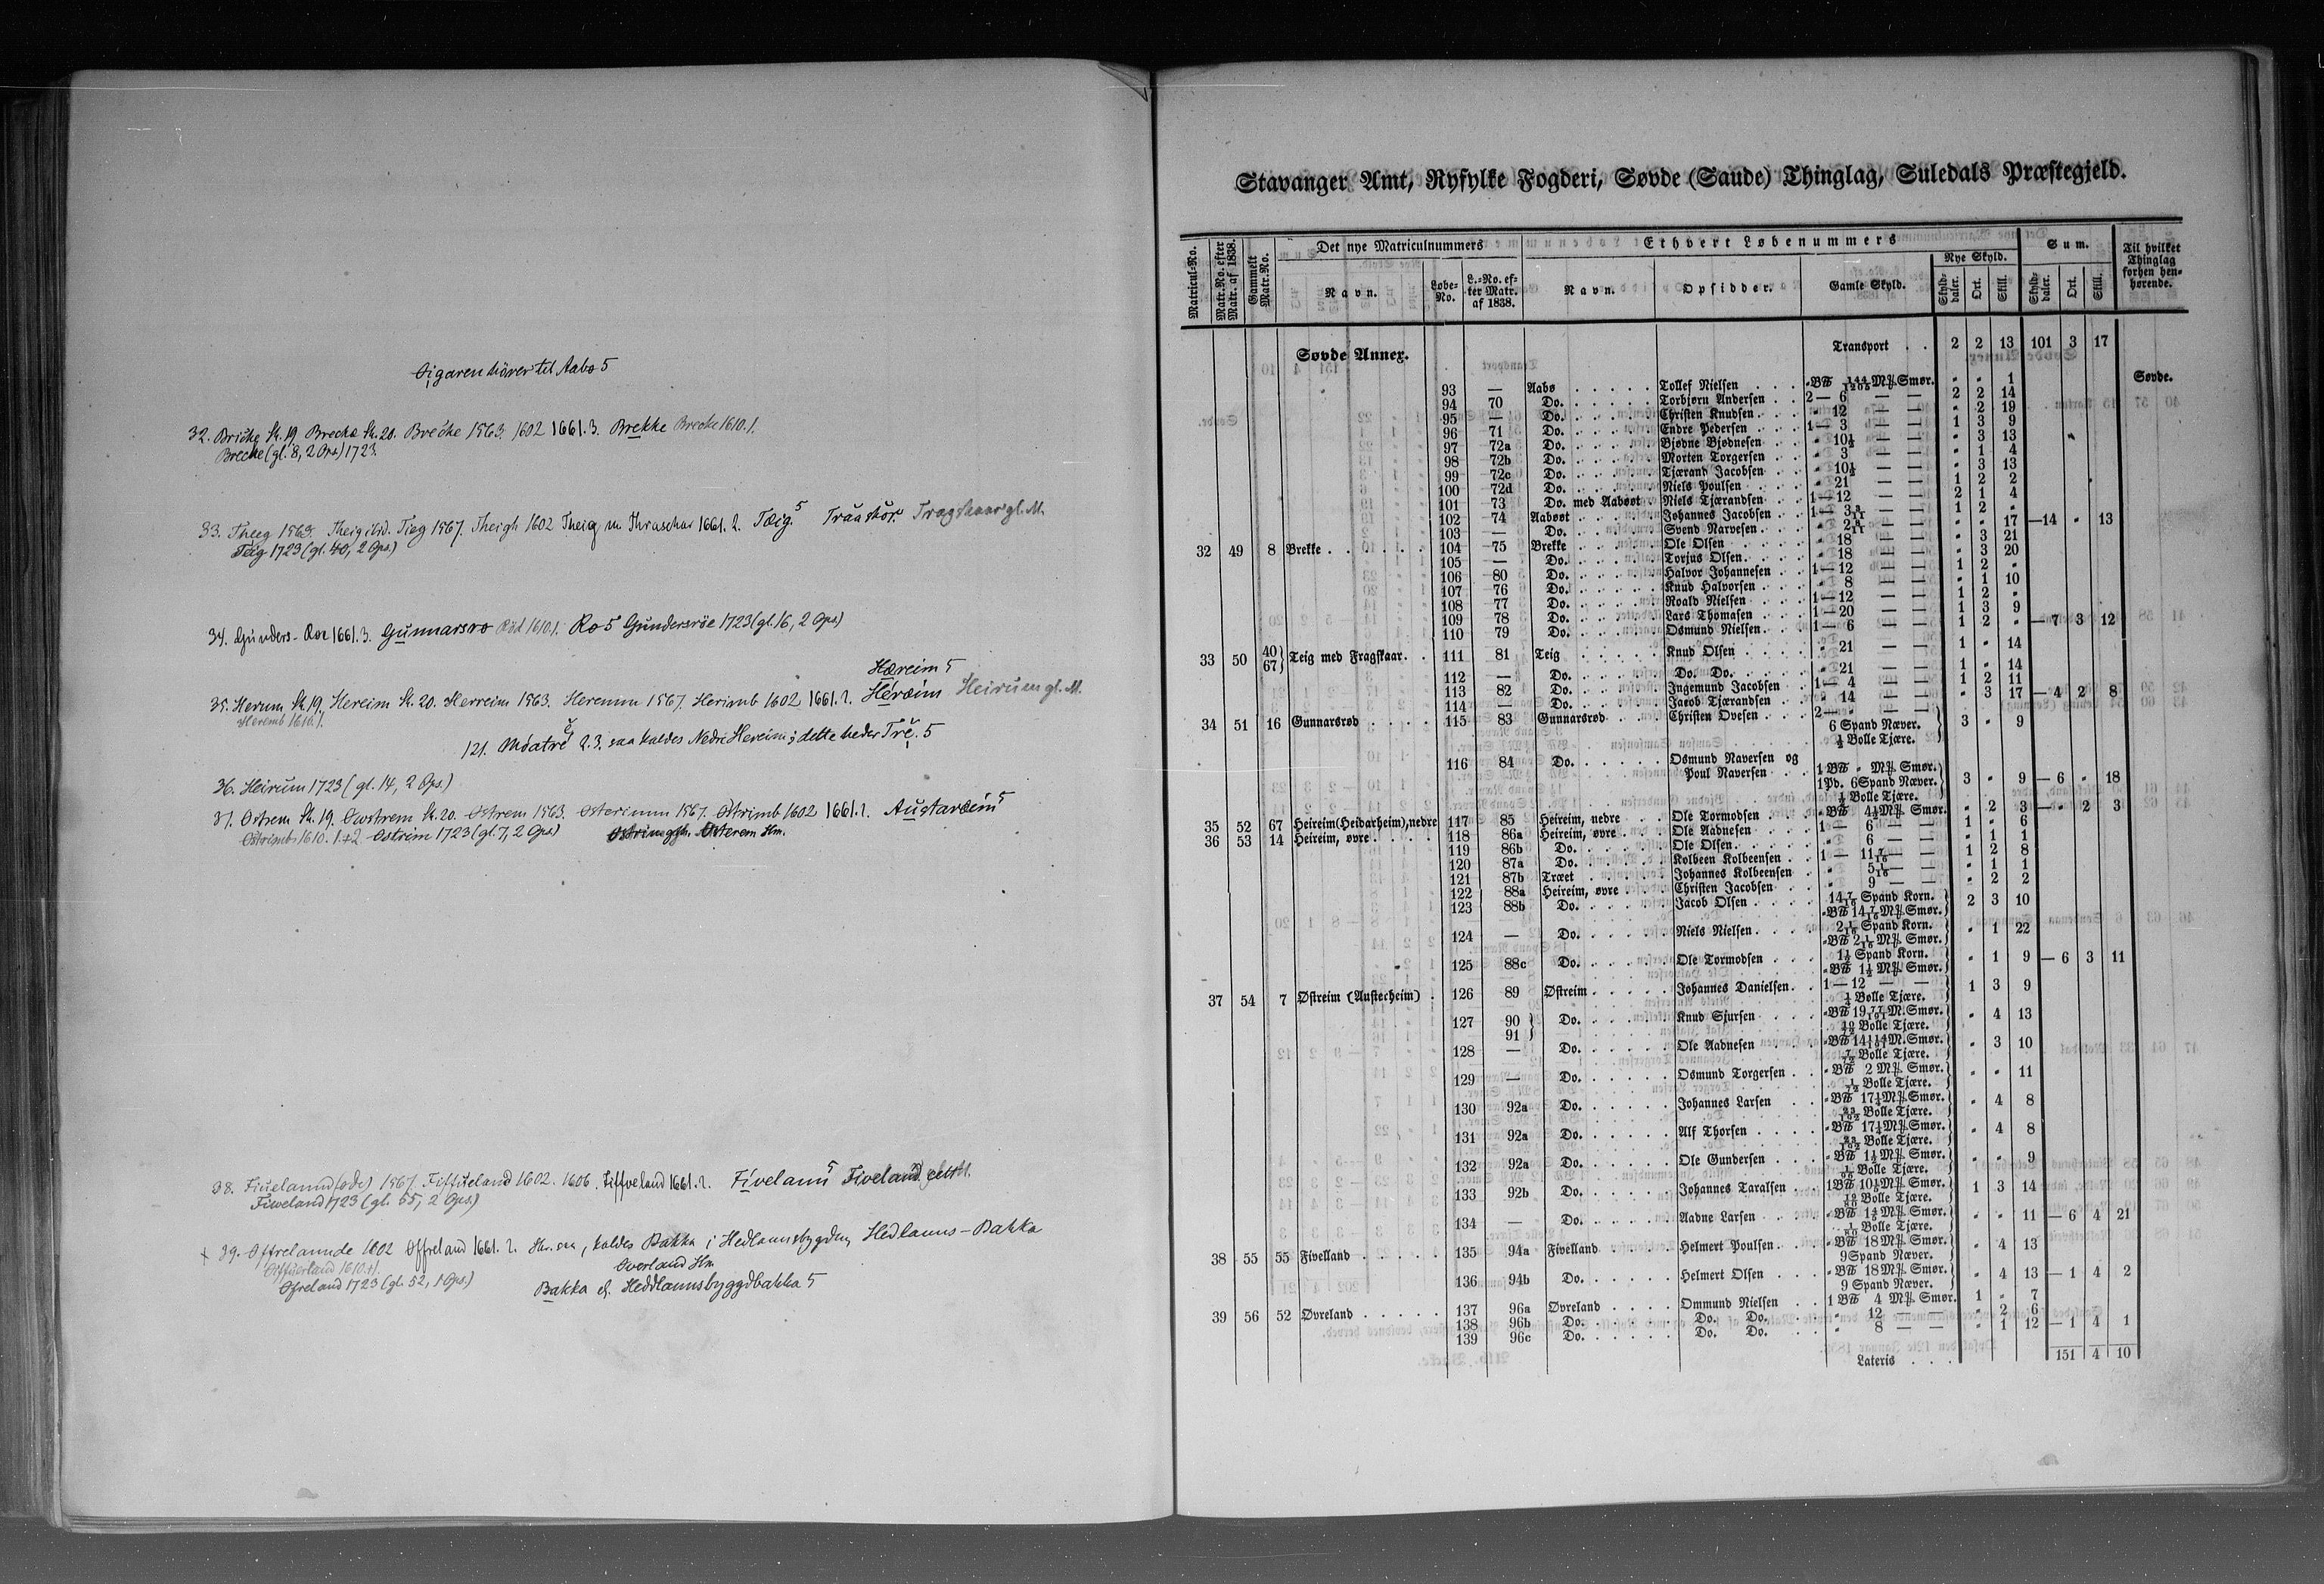 Oigaren hörer til Aabo 5
32. Briche Sk. 19. Brecka Sk. 20. Breche 1563. 1602 1661. 3. Brekke Brecke 1610. 1.
Breche (gl. 8, 2 Ops) 1723.
33. Theeg 1563. Theig ibid. Tieg 1567. Theigh 1602 Theig m Thraschar 1661. 2. Tæig. 5 Traaskor. Fragskaar gl. M.
Teig 1723 (gl. 40, 2 Ops.)
34. Gunders-Roe 1661. 3. Gunnarsro Röd 1610. 1. Ro 5 Gundersröe 1723 (gl. 16, 2 Ops)
Hæreim 5
35. Herum Sk. 19. Hereim Sk. 20. Herreim 1563. Heremm 1567. Herimb 1602 1661. 2. Héræim Heirum gl. M.
Heremb 1610. 1.
121. Móatre 2. 3. saa kaldes Nedre Hereim; dette heder Træ. 5
36. Heirum 1723 (gl. 14, 2 Ops.)
37. Ostrem Sk. 19. Owstrem Sk. 20. Ostrem 1563. Osterimm 1567. Østrimb 1602 1661. 2. Augstaræim 5
Østrimb 1610. 1+2. Østreim 1723 (gl. 7, 2 Ops)
38. Fiuelannd (øde) 1567. Fiffueland 1602. 1606. Fiffveland 1661. 2. Fívelann 5 Fiveland
Fiweland 1723 (gl. 55, 2 Ops.)
+ 39. Offrelannde 1602 Offreland 1661. 2. Skr. saa, kaldes Bakka i Hedlannsbygden, Hedlanns-Bakka
Offuerland 1610. 1. Overland Hm.
Ofreland 1723 (gl. 52, 1 Ops.) Bakka el. Heddlannsbyggdbakka 5
Stavanger Amt, Ryfylke Fogderi, Søvde (Saude) Thinglag, Suledals Præstegjeld.
Matricul-No. Matr.No. efter Matr. af 1838. Gammelt Matr.No. Det nye Matriculnummers Ethvert Løbenummers Sum. Til hvilket Thinglag forhen henhørende.
Navn. Løbe-No. L.-No. efter Matr. af 1838. Navn. Opsidder. Gamle Skyld. Nye Skyld. Skylddaler. Ort. Skill. Skylddaler. Ort. Skill.
Søvde Annex. Transport . . 2 2 13 101 3 17
93 — Aabø . . . . . Tollef Nielsen . . . „ B℔ 144/1205 M℔ Smør. „ „ 1 Søvde.
94 70 Do. . . . . . Torbjørn Andersen . . 2 — 6 — — 2 2 14
95 — Do. . . . . . Christen Knudsen . . . „ 12 — — „ 2 19
96 71 Do. . . . . . Endre Pedersen . . . 1 — 3 — — 1 3 9
97 72a Do. . . . . . Bjødne Bjødnesen . . „ 10½ — — „ 3 13
98 72b Do. . . . . . Morten Torgersen . . „ 3 — — „ 1 4
99 72c Do. . . . . . Tjærand Jacobsen . . „ 10½ — — „ 3 13
100 72d Do. . . . . . Niels Poulsen . . . . „ 21 — — 1 2 2
101 73 Do. med Aabøøt . Niels Tjærandsen . . 1 — 12 — — 2 1 4
102 74 Aabøøt . . . . . Johannes Jacobsen . . 1 — 3 3/11 — — 1 2 „
103 — Do. . . . . . Svend Narvesen . . . „ 2 8/11 — — „ „ 17 — 14 „ 13
32 49 8 Brekke . . . . . . 104 75 Brekke . . . . . Ole Olsen . . . . „ 18 — — „ 3 21
105 — Do. . . . . . Torjus Olsen . . . . „ 18 — — „ 3 20
106 80 Do. . . . . . Halvor Johannesen . . 1 — 12 — — 1 2 „
107 76 Do. . . . . . Knud Halvorsen . . . „ 8 — — „ 1 10
108 77 Do. . . . . . Roald Nielsen . . . 1 — 12 — — 1 2 „
109 78 Do. . . . . . Lars Thomasen . . . 1 — 20 — — 1 3 9
110 79 Do. . . . . . Osmund Nielsen . . . 1 — 6 — — 1 2 „ — 7 3 12
33 50 40 67} Teig med Fragskaar . . 111 81 Teig . . . . . Knud Olsen . . . . „ 21 — — 1 „ 14
112 — Do. . . . . . Do. Do. . . . . „ 21 — — 1 „ 14
113 82 Do. . . . . . Ingemund Jacobsen . . 1 — 4 — — 1 2 11
114 — Do. . . . . . Jacob Tjærandsen . . „ 14 — — „ 3 17 — 4 2 8
34 51 16 Gunnarsrød . . . . 115 83 Gunnarsrød . . . Christen Ovesen . . . 2 — „ — — } 3 „ 9
6 Spand Næver.
½ Bolle Tjære.
116 84 Do. . . . . . Osmund Naversen og
Poul Naversen . . . 1 B℔ „ M℔ Smør. } 3 „ 9 — 6 „ 18
1 Pd. 6 Spand Næver.
½ Bolle Tjære.
35 52 67 Heireim (Heidarheim), nedre 117 85 Heireim, nedre . . Ole Tormodsen . . . „ B℔ 4½ M℔ Smør. „ 2 3 — „ 2 3
36 53 14 Heireim, øvre . . . . 118 86a Heireim, øvre . . . Ole Aadnesen . . . 1 — 6 — — 1 „ 6
119 86b Do. . . . . . Ole Olsen . . . . . „ 6 — — „ 1 1
120 87a Do. . . . . . Kolbeen Kolbeensen . . 1 — 11 7/16 — — 1 2 8
121 87b Træet . . . . . Johannes Kolbeensen . . „ 5 1/16 — — „ 1 1
122 88a Heireim, øvre . . . Christen Jacobsen . . „ 9 — — „ 2 2
123 88b Do. . . . . . Jacob Olsen . . . . 14 7/16 Spand Korn. } 2 3 10
„ B℔ 14 7/16 M℔ Smør.
124 — Do. . . . . . Niels Nielsen . . . . 2 1/16 Spand Korn. } „ 1 22
„ B℔ 2 1/16 M℔ Smør.
125 88c Do. . . . . . Ole Tormodsen . . . 1½ Spand Korn. } „ 1 9 — 6 3 11
„ B℔ 1½ M℔ Smør.
37 54 7 Østreim (Austerheim) . 126 89 Østreim . . . . . Johannes Danielsen . . 1 — 12 — — } 1 3 9
¼ Bolle Tjære.
127 90 91} Do. . . . . . Knud Sjursen . . . „ B℔ 19 77/191 M. Smør. } „ 4 13
Bolle Tjære.
128 — Do. . . . . . Ole Aadnesen . . . „ B℔ 14 114/191 M. Smør. } „ 3 10
Bolle Tjære.
129 — Do. . . . . . Osmund Torgersen . . „ B℔ 2 M℔ Smør. } „ „ 11
1/12 Bolle Tjære.
130 92a Do. . . . . . Johannes Larsen . . „ B℔ 17¼ M℔ Smør. } „ 4 8
23/192 Bolle Tjære.
131 92a Do. . . . . . Alf Thorsen . . . . „ B℔ 17¼ M℔ Smør. } „ 4 8
23/192 Bolle Tjære.
132 92a Do. . . . . . Ole Gundersen . . . „ B℔ 1½ M℔ Smør. } „ „ 9
1/96 Bolle Tjære.
133 92b Do. . . . . . Johannes Taraldsen . . 1 B℔ 10½ M℔ Smør. } 1 3 14
19/80 Bolle Tjære.
134 — Do. . . . . . Aadne Larsen . . . „ B℔ 1⅘ M℔ Smør. } „ „ 11 — 6 4 21
1/80 Bolle Tjære.
38 55 55 Fivelland . . . . . . 135 94a Fivelland . . . . Helmert Poulsen . . . „ B℔ 18 M℔ Smør. } „ 4 13
9 Spand Næver.
136 94b Do. . . . . . Helmert Olsen . . . „ B℔ 18 M℔ Smør. } „ 4 13 — 1 4 2
9 Spand Næver.
39 56 52 Øvreland . . . . . . 137 96a Øvreland . . . . Ommund Nielsen . . 1 B℔ 4 M℔ Smør. 1 „ 7
138 96b Do. . . . . . Do. Do. . . „ 12 — — „ 2 6
139 96c Do. . . . . . Do. Do. . . „ 8 — — „ 1 12 — 1 4 1
Lateris . . . 151 4 10